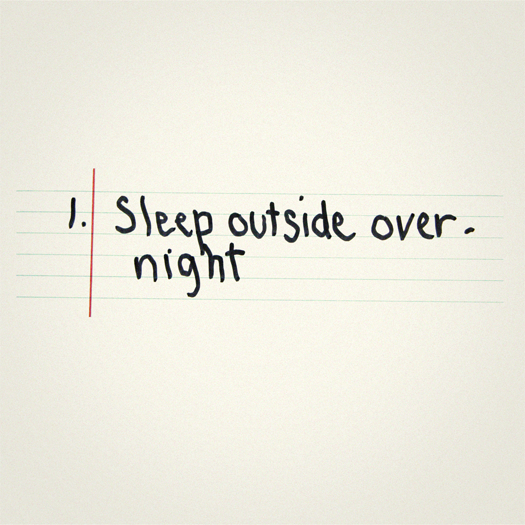 1. Sleep outside over-
night